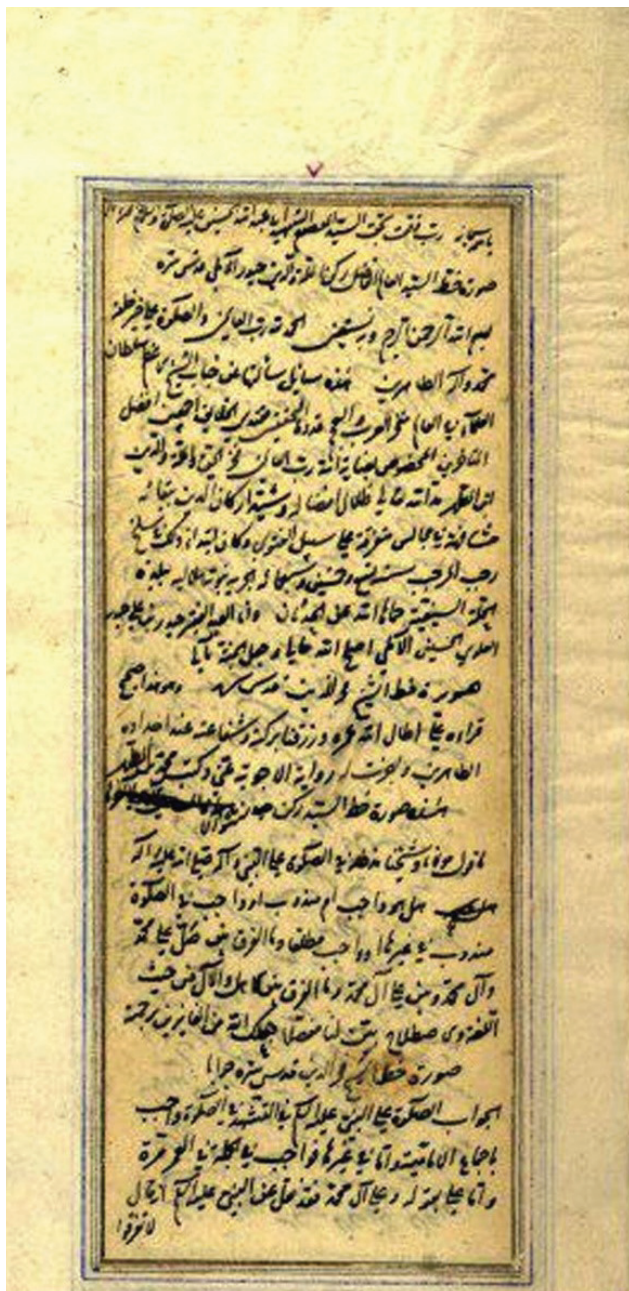 صورة خط السيد العالم الفاضل ركن الملة والدين حيدر الآملي قدس سره
بسم الله الرحمن الرحيم وبه نستعين الحمد لله رب العالمين والصلوة على خير خلقه
محمد وآله الطاهرين هذه مسايل سألتها عن جناب الشيخ الأعظم سلطان
العلماء في العالم مفخر العرب والعجم قدوة المحققين مقتدى الخلائق أجمعين أفضل
المتأخرين المخصوص بعناية رب العالمين فخر الحق والملة والدين
ابن المطهر مد الله ظلال افضاله وشيد اركان الدين ببقائه
مشافهة في مجالس متفرقة على سبيل الفتوى وكان ابتداء ذلك في سلخ
رجب المرجب سنة تسع وخمسين وسبعمائة هجرية نبوية هلالية ببلدة
الحلة السيفية حماها الله عن الحدثان وأنا العبد الفقير حيدر بن علي بن حيدر
العلوي الحسيني الآملي اصلح الله حاله وجعل الجنة مآله
صورة خط الشيخ فخر الدين قدس سره هذا صحيح
قراءه علي اطال الله عمره ورزقنا بركته وشفاعته عند اجداده
الطاهرين واجزت له رواية الاجوبة عني وكتب محمد بن المطهر
صورة خط السيد ركن
ما يقول مولانا وشيخنا مد ظله في الصلوة على النبي وآله صلى الله عليه وآله
هل هو واجب ام مندوب او واجب في الصلوة
مندوب في غيرها او واجب مطلقا وما الفرق بين صل على محمد
وآل محمد وبين على آل محمد وما الفرق بين الأهل والآل من حيث
اللغة وفي اصطلاح بينت لنا مفصلا جعلك الله من الفايزين برحمته
صورة خط الشيخ فخر الدين قدس سره جوابا
الجواب الصلوة على النبي عليه السلم في التشهد في الصلوة واجب
باجماع الامامية واما في غيرها فواجب في الجملة في العمر مرة
واما على بقوله وعلى آل محمد فقد نقل عن النبي عليه السلم انه قال
لا تفرقوا